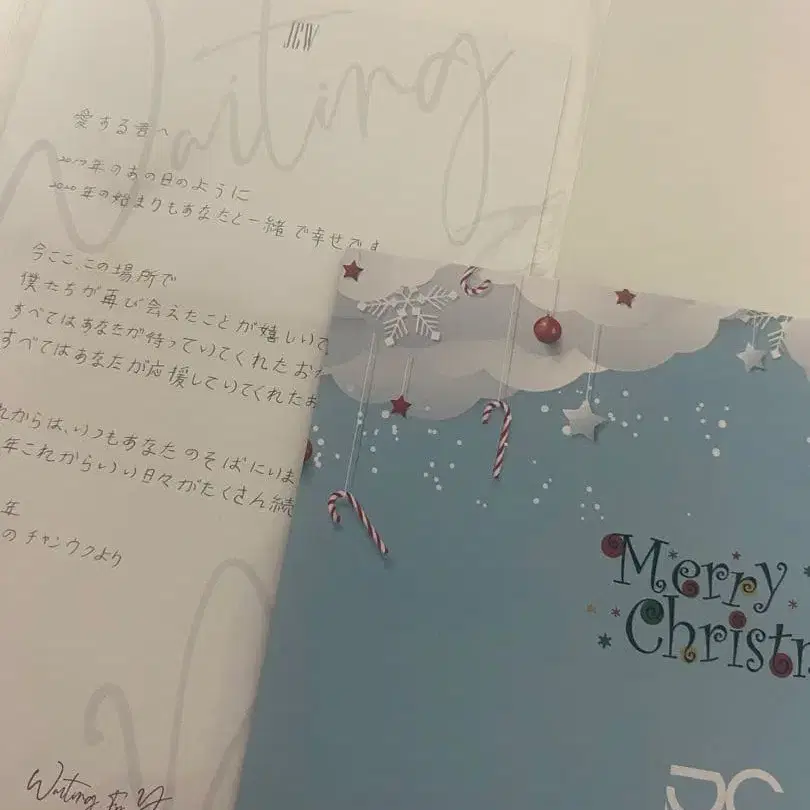 JCW
Waiting
愛する君へ
2019年のあの日のように
2020年の始まりもあなたと一緒で幸せです
今ここ、この場所で
僕たちが再び会えたことが嬉しいで
すべてはあなたが待っていてくれたおか
すべてはあなたが応援していてくれたお
れからは、いつもあなたのそばにいま
年これからいい日々がたくさん続
年
のチャンウクより
Waiting For Y
Merry
Christm